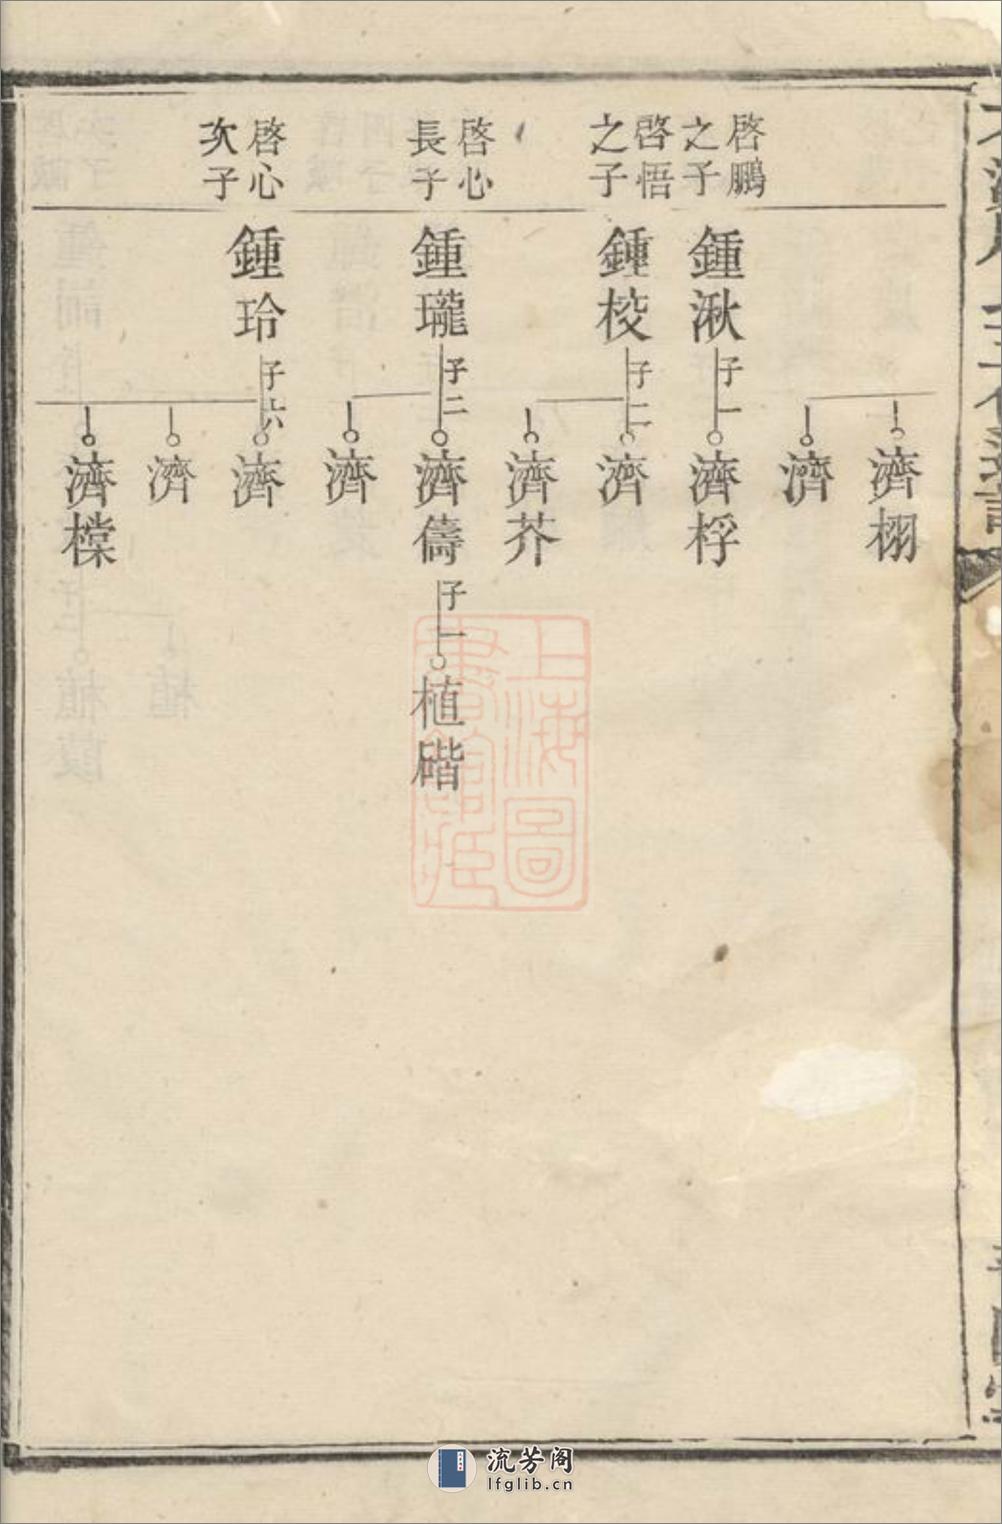 濟栩
濟
啓鵬
之子
鍾湫
子一
濟桴
啓悟
之子
鍾校
子二
濟
濟芥
啓心
長子
鍾瓏
子二
濟儔
子一
植𥔵
濟
啓心
次子
鍾玲
子六
濟
濟
濟樘
上海圖
書館藏
流芳阁
lfglib.cn